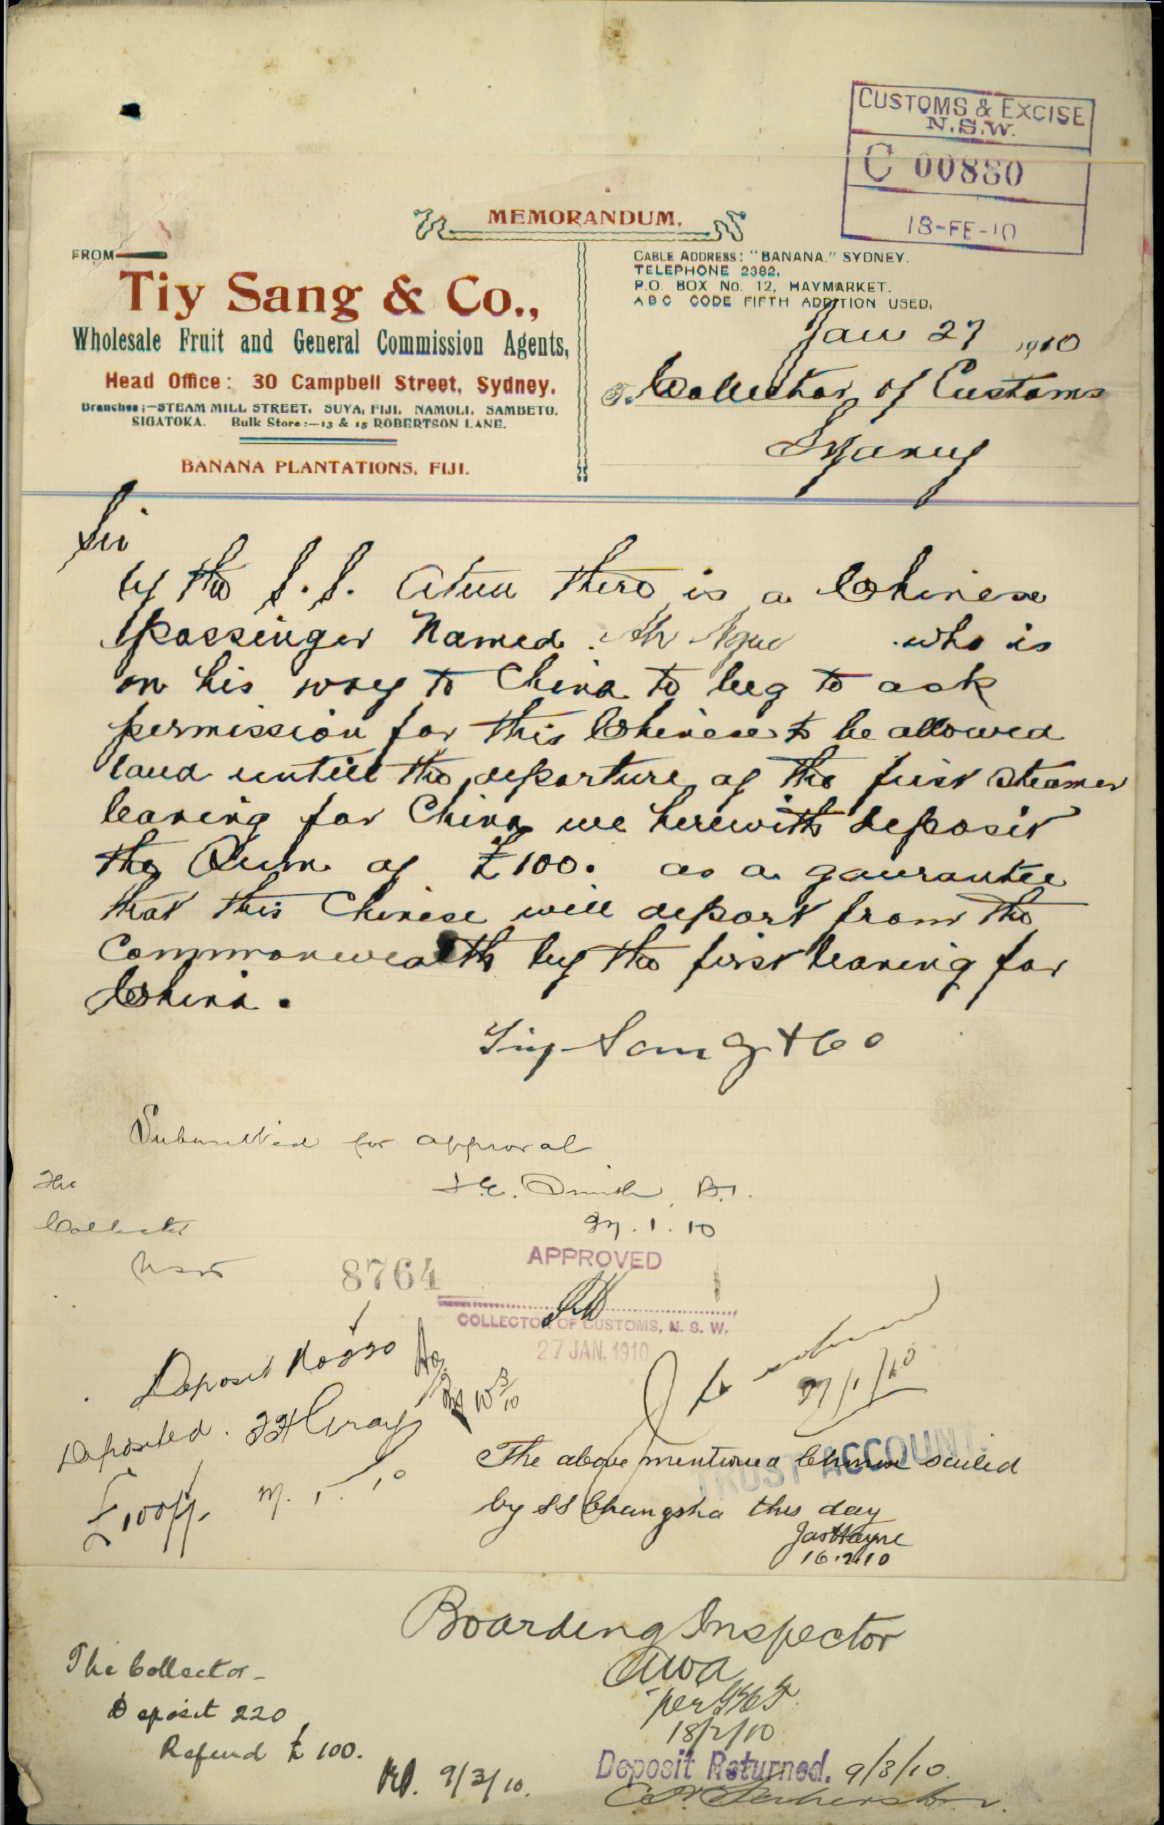 CUSTOMS & EXCISE
N.S.W.
C 00880
18-FE-10
MEMORANDUM.
FROM
Tiy Sang & Co.,
Wholesale Fruit and General Commission Agents,
Head Office: 30 Campbell Street, Sydney.
Branches:—STEAM MILL STREET, SUVA, FIJI, NAMOLI, SAMBETO,
SIGATOKA. Bulk Store:—13 & 15 ROBERTSON LANE.
BANANA PLANTATIONS, FIJI.
CABLE ADDRESS: "BANANA." SYDNEY.
TELEPHONE 2382.
P.O. BOX No. 12, HAYMARKET.
ABC CODE FIFTH ADDITION USED.
Jan 27 1910
To Collector of Customs
Sydney
Sir
by the S.S. Atua there is a Chinese
passenger Named Ah who is
on his way to China to beg to ask
permission for this Chinese to be allowed
land untill the departure of the first steamer
leaving for China we herewith deposit
the Sum of £100. as a gaurantee
that this Chinese will depart from the
Commonwealth by the first leaving for
China.
Tiy Sang & Co
Submitted for approval
The
Collector
Smith B.I.
27.1.10
NSW
8764
APPROVED
COLLECTOR OF CUSTOMS, N. S. W.
27 JAN. 1910
Deposit No 220
27/1/10
Deposited.
£100
TRUST ACCOUNT.
The above mentioned Chinese sailed
by SS Changsha this day
Jas Hayne
16.2.10
Boarding Inspector
per
18/2/10
The Collector —
Deposit 220
Refund £100.
9/3/10.
Deposit Returned. 9/3/10.